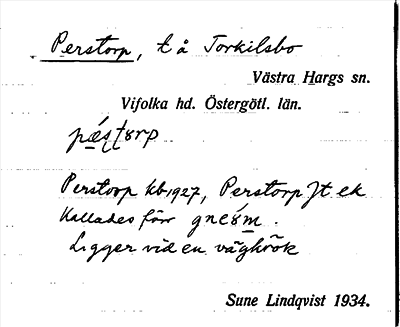 Perstorp, t å Torkilsbo
Västra Hargs sn.
Vifolka hd. Östergötl. län.
pǽştorp
Perstorp kb 1927, Perstorp Jt ek
Kallades förr gneóm.
Ligger vid en vägkrök
Sune Lindqvist 1934.